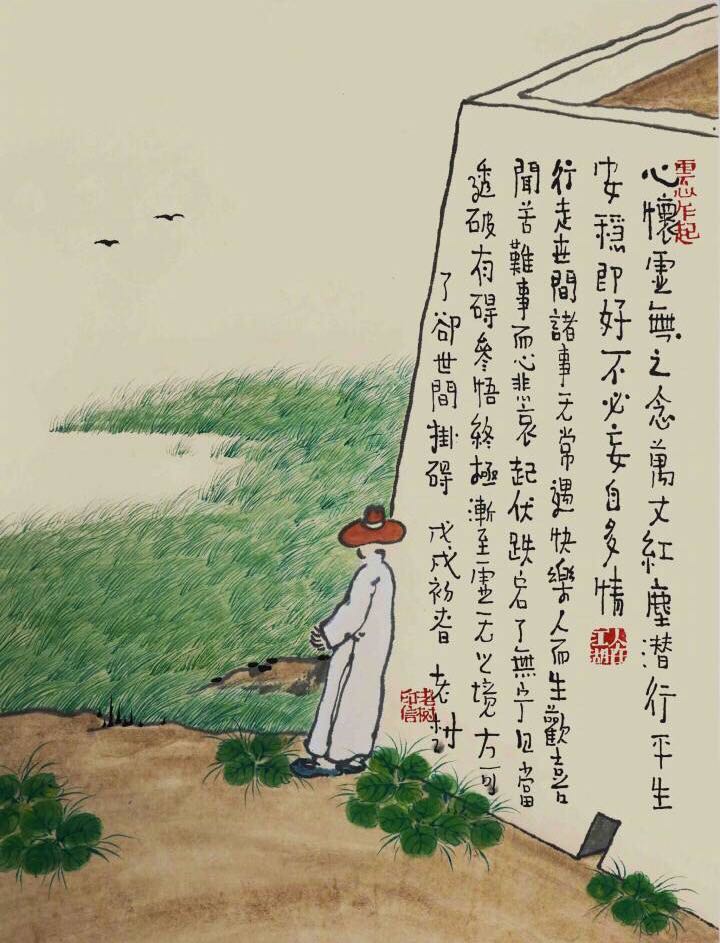 心懷虛無之念萬丈紅塵潜行平生
安穩即好不必妄自多情
人在江湖
行走世間諸事无常遇快樂人而生歡喜
聞苦難事而心悲哀起伏跌宕了無宁日當
透破有碍參悟終極漸至虛无之境方可
了卻世間掛碍 戊戌初春 老樹
老树印信